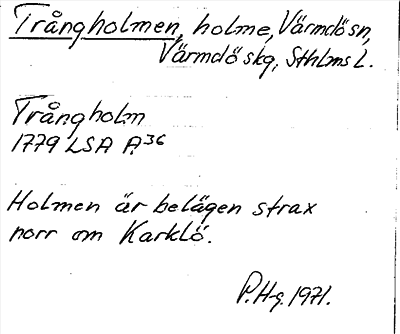 Trångholmen, holme, Värmdö sn,
Värmdö skg, Sthlms L.
Trångholm
1779 LSA A 36
Holmen är belägen strax
norr om Karklö.
P.H-g. 1971.